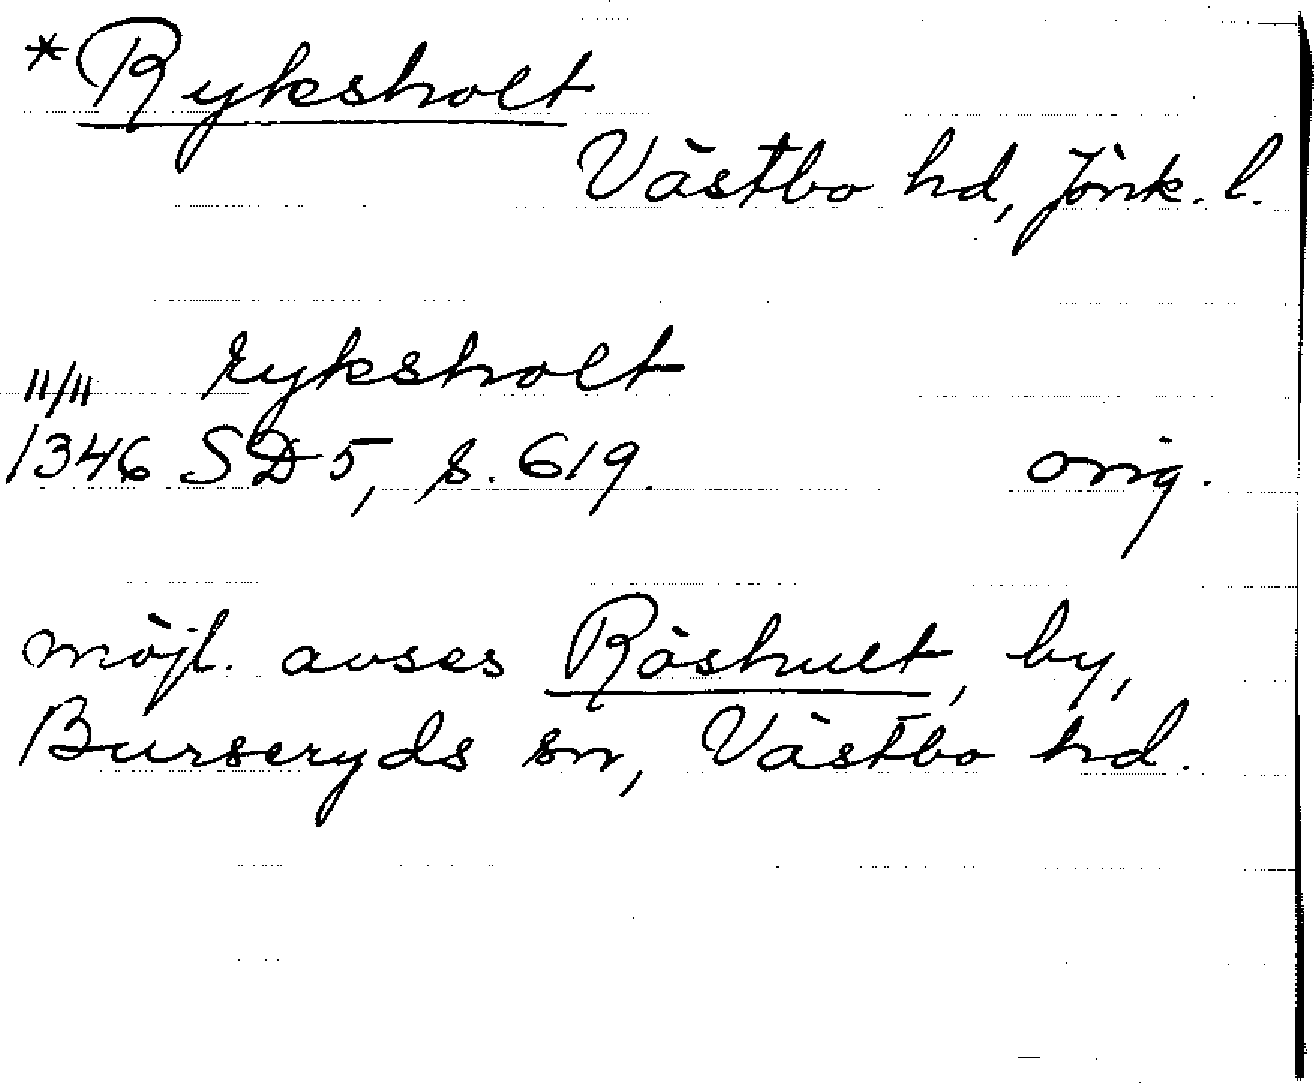 *Ryksholt
Västbo hd, Jönk. l.
ryksholt
11/11
1346 SD 5, s. 619. orig.
möjl. avses Röshult, by,
Burseryds sn, Västbo hd.